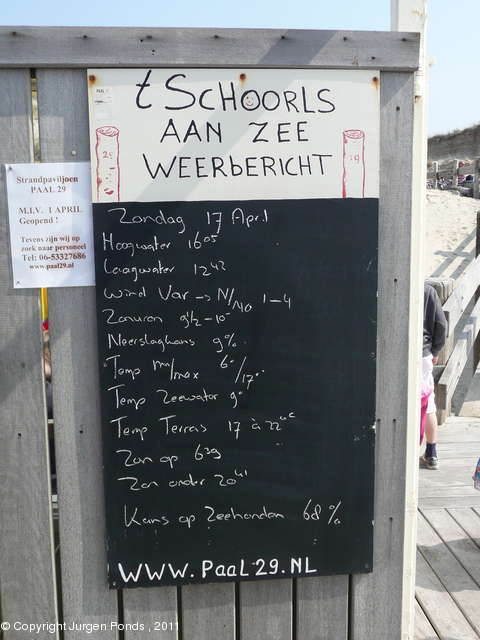 't SCHOORLS
AAN ZEE
WEERBERICHT
29
29
Strandpaviljoen
PAAL 29
M.I.V. 1 APRIL
Geopend !
Tevens zijn wij op
zoek naar personeel
Tel: 06-53327686
www.paal29.nl
Zondag 17 April
Hoogwater 16 05
Laagwater 12 42
Wind Var → N/NO 1-4
Zonuren 9½ - 10
Neerslagkans 9%
Temp min/max 6°/17°
Temp Zeewater 9°
Temp Terras 17 à 22°C
Zon op 6 39
Zon onder 20 41
Kans op Zeehonden 68%
WWW.PAAL29.NL
© Copyright Jurgen Fonds , 2011